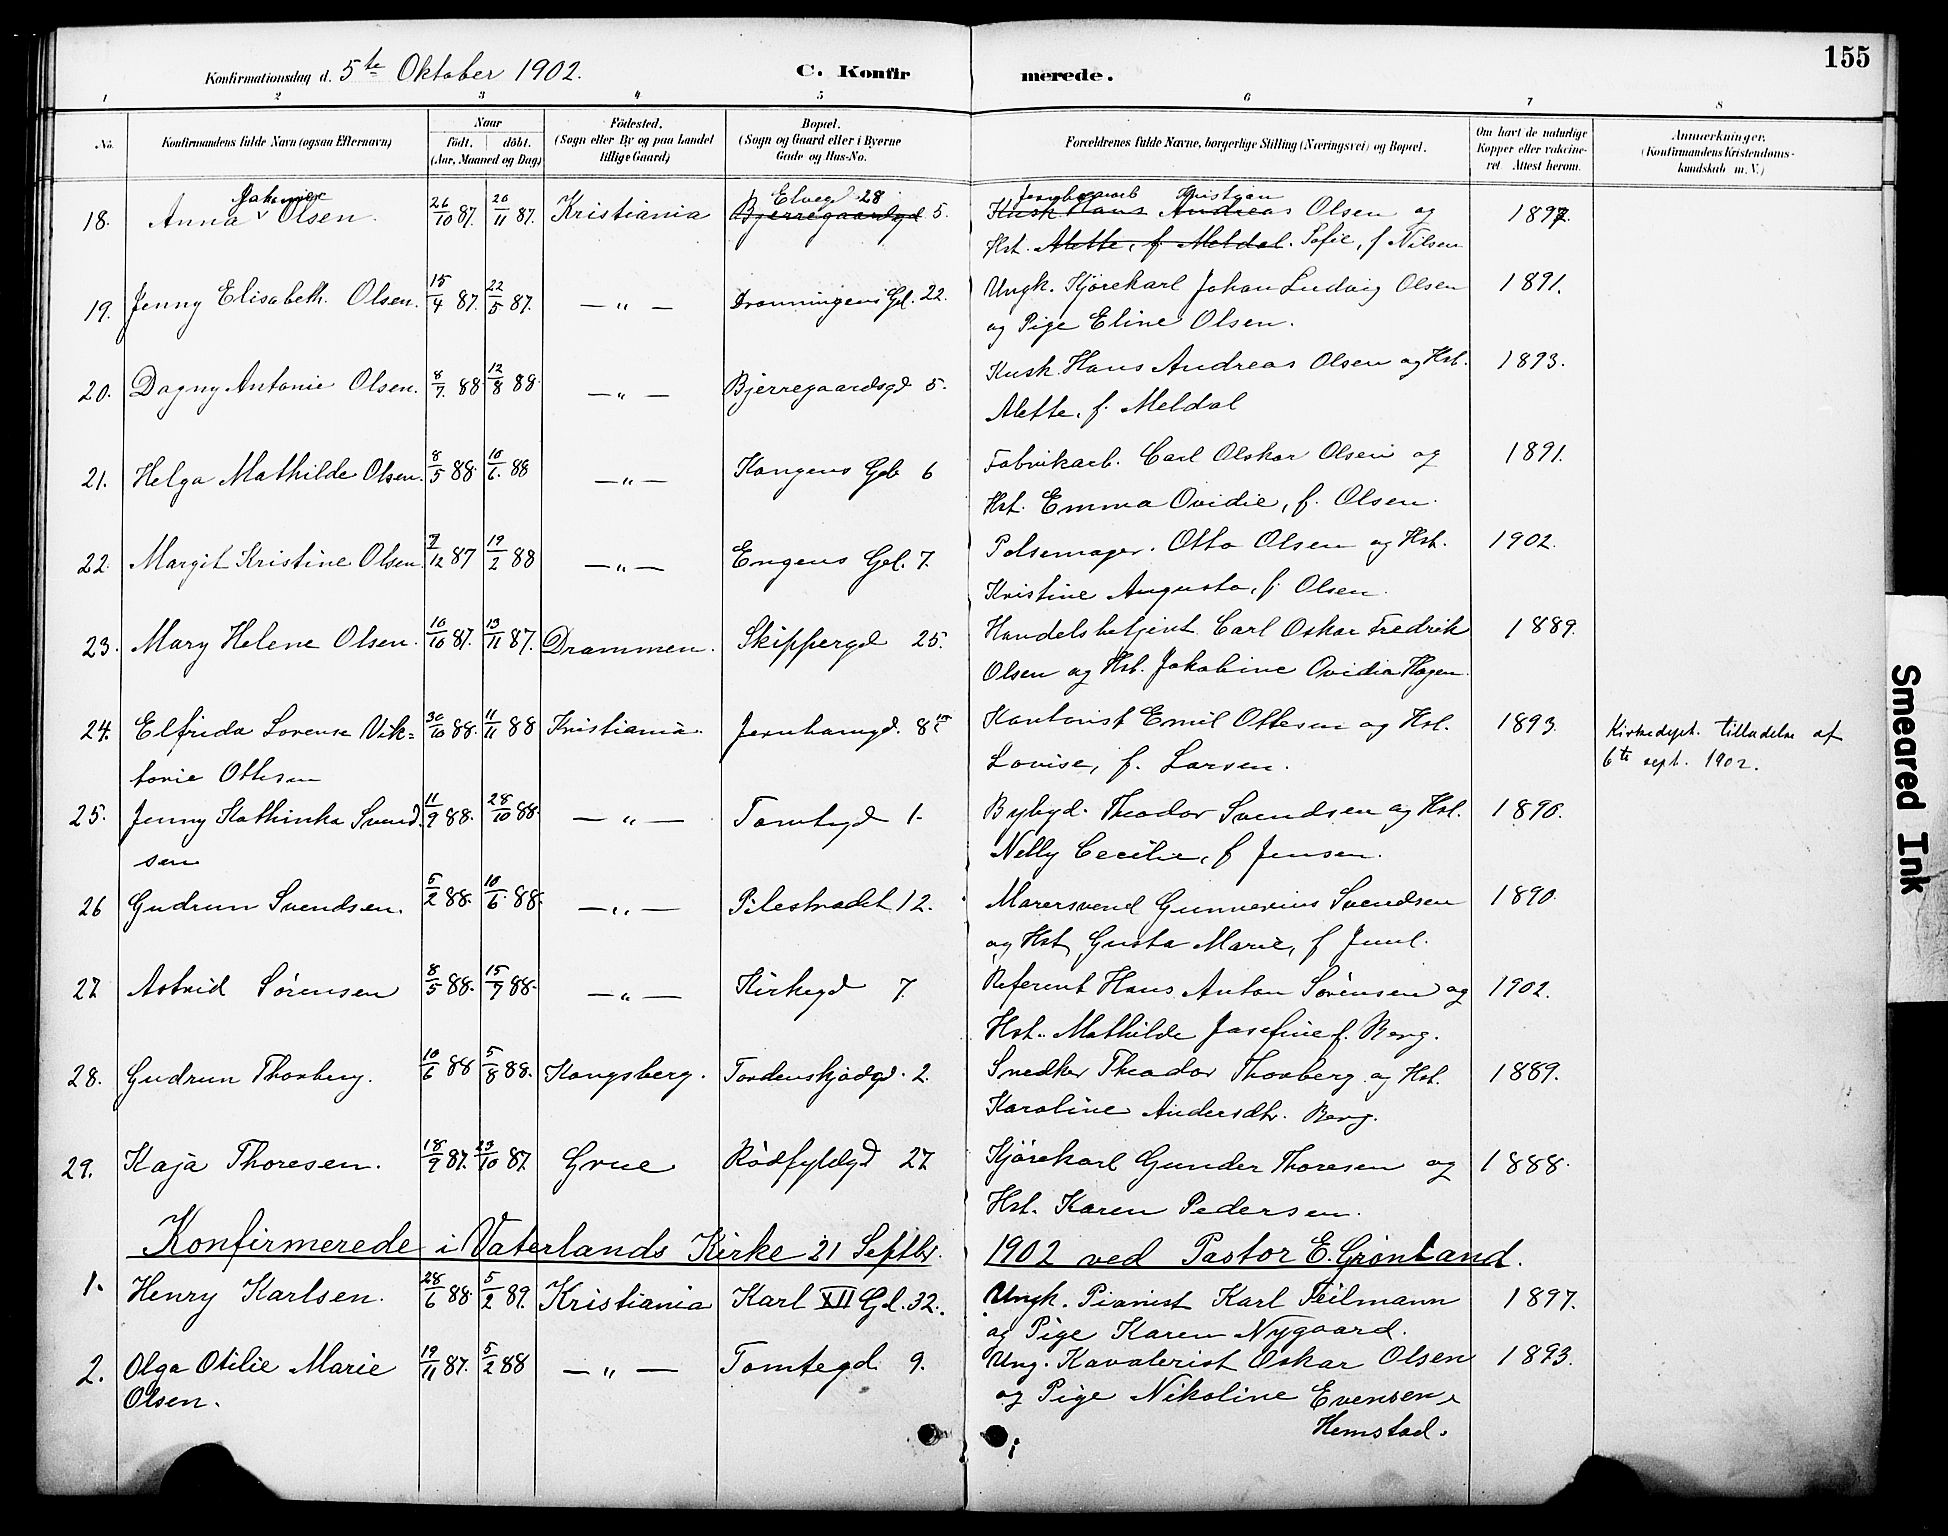 155
Konfirmationsdag d. 5te Oktober 1902. C. Konfirmerede.
1 2 3 4 5 6 7 8
No. Konfirmandens fulde Navn (ogsaa Efternavn) Naar födt. döbt. (Aar, Maaned og Dag) Födested. (Sogn eller By og paa Landet tillige Gaard) Bopæl. (Sogn og Gaard eller i Byerne Gade og Hus-No. Forældrenes fulde Navne, borgerlige Stilling (Næringsvei) og Bopæl. Om havt de naturlige Kopper eller vaccineret Attest herom. Anmærkninger. (Konfirmandens Kristendomskundskab m. V.)
Elvegd 28 Kristian
18. Anna Olsen. 26/10 87. 20/11 87. Kristiania Bjerregaardsgd 5. Kusk Hans Andreas Olsen og 1897.
Hst. Alette, f. Meldal. Sofie, f Nilsen
19. Jenny Elisabeth. Olsen. 15/4 87. 22/5 87. — „ — Dronningens Gd. 22. Ungk. Kjörekarl Johan Ludvig Olsen 1891.
og Pige Eline Olsen.
20. Dagny Antonie Olsen. 8/7. 88 12/8 88. — „ — Bjerregaardsgd 5. Kusk Hans Andreas Olsen og Hst. 1893.
Alette, f. Meldal
21. Helga Mathilde Olsen. 8/5 88. 10/6. 88 — „ — Kongens Gd 6 Fabrikarb. Carl Olskar Olsen og 1891.
Hst. Emma Ovidie, f. Olsen.
22. Margit Kristine Olsen 7/12 87 19/2 88 — „ — Engens Gd. 7. Pølsemager. Otto Olsen og Hst. 1902.
Kristine Augusta, f. Olsen.
23. Mary Helene Olsen. 10/10 87. 13/11 87. Drammen. Skippergd 25. Handelsbetjent. Carl Oskar Fredrik 1889.
Olsen og Hst. Jakobine Ovidia Hagen.
24. Elfrida Lorense Vik= 30/10 88. 11/11 88 Kristiania. Jernbanegd. 8 Kontorist Emil Ottesen og Hst. 1893. Kirkedept. tilladelse af
torie Ottesen Lovise, f. Larsen. 6te sept. 1902.
25. Jenny Kathinka Svend 11/9 88. 28/10 88. — „ — Tomtegd 1. Bybyd. Theodor Svendsen og Hst. 1890.
sen Nelly Cecilie, f Jensen.
26 Gudrun Svendsen. 5/2 88. 10/6. 88. — „ — Pilestrædet 12. Murersvend Gunnerius Svendsen 1890.
og Hst, Gusta Marie, f Juul.
27 Astrid Sörensen 8/5 88. 15/7 88. — „ — Kirkegd 7. Referent Hans Anton Sörensen og 1902.
Hst. Mathilde Josefine f. Berg.
28. Gudrun Thorberg. 10/6 88 5/8 88. Kongsberg. Tordenskjoldgd. 2. Snedker Theodor Thorberg og Hst. 1889.
Karoline Andersdtr. Berg.
29. Kaja Thoresen. 18/9 87. 23/10 87. Grue Rödfyldgd 27. Kjörekarl Gunder Thoresen og 1888.
Hst. Karen Pedersen.
Konfirmerede i Vaterlands Kirke 21 Septbr. 1902 ved Pastor E. Grønland.
1. Henry Karlsen. 28/6 88. 5/2 89. Kristiania Karl XII Gd. 32. Ungk. Pianist Karl Teilmann 1897.
og Pige Karen Nygaard.
2. Olga Otilie Marie 19/11 87. 5/2 88 — „ — Tomtegd. 9. Ung. Kavalerist Oskar Olsen 1893.
Olsen. og Pige Nikoline Evensen
Hemstad.
Smeared Ink